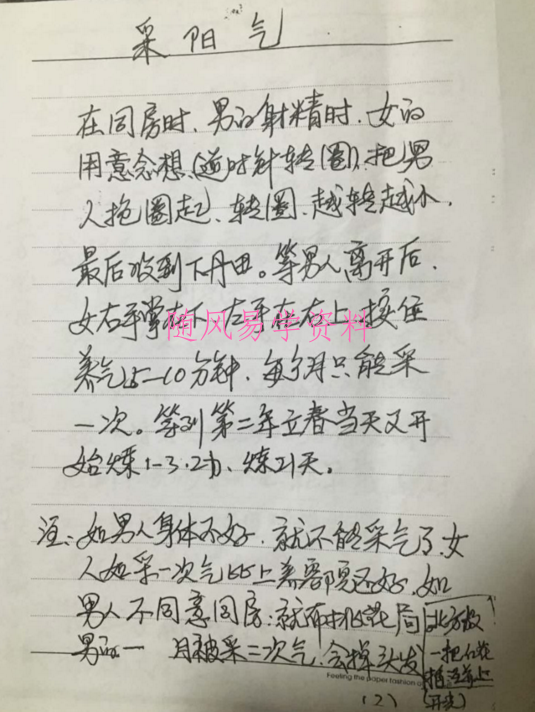 采阳气
在同房时、男的射精时、女的
用意念想、(逆时针转圈)、把男
人抱圈起、转圈、越转越小、
最后收到下丹田。等男人离开后、
女右手掌在下、左手在右上、按住
养气5—10分钟、每个月只能采
一次。等到第二年立春当天又开
始炼1-3.2功、炼21天。
注:如男人身体不好、就不能采气了、女
人如采一次气比上美容院还好、如
男人不同意同房:就布桃花局
男的一月被采二次气、会掉头发
北方放
一把红花
插
上
随风易学资料
Feeling the paper fashion
(2)